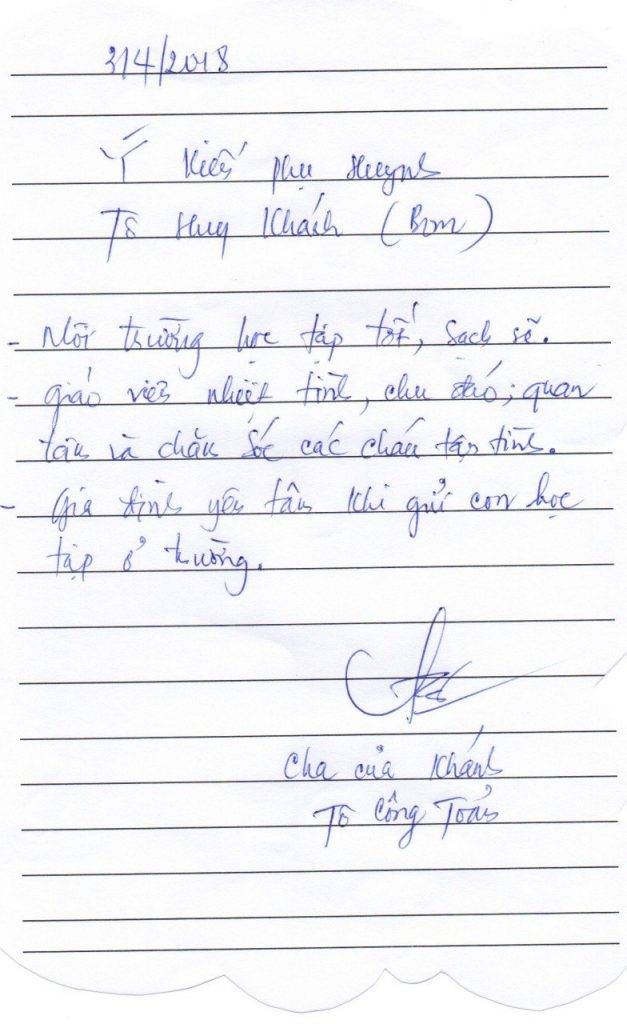 3/4/2018
Ý kiến phụ huynh
Tô Huy Khánh (Bom)
- Môi trường học tập tốt, sạch sẽ.
- giáo viên nhiệt tình, chu đáo; quan
tâm và chăm sóc các cháu tận tình.
- Gia đình yên tâm khi gửi con học
tập ở trường.
Cha của Khánh
Tô Công Toản